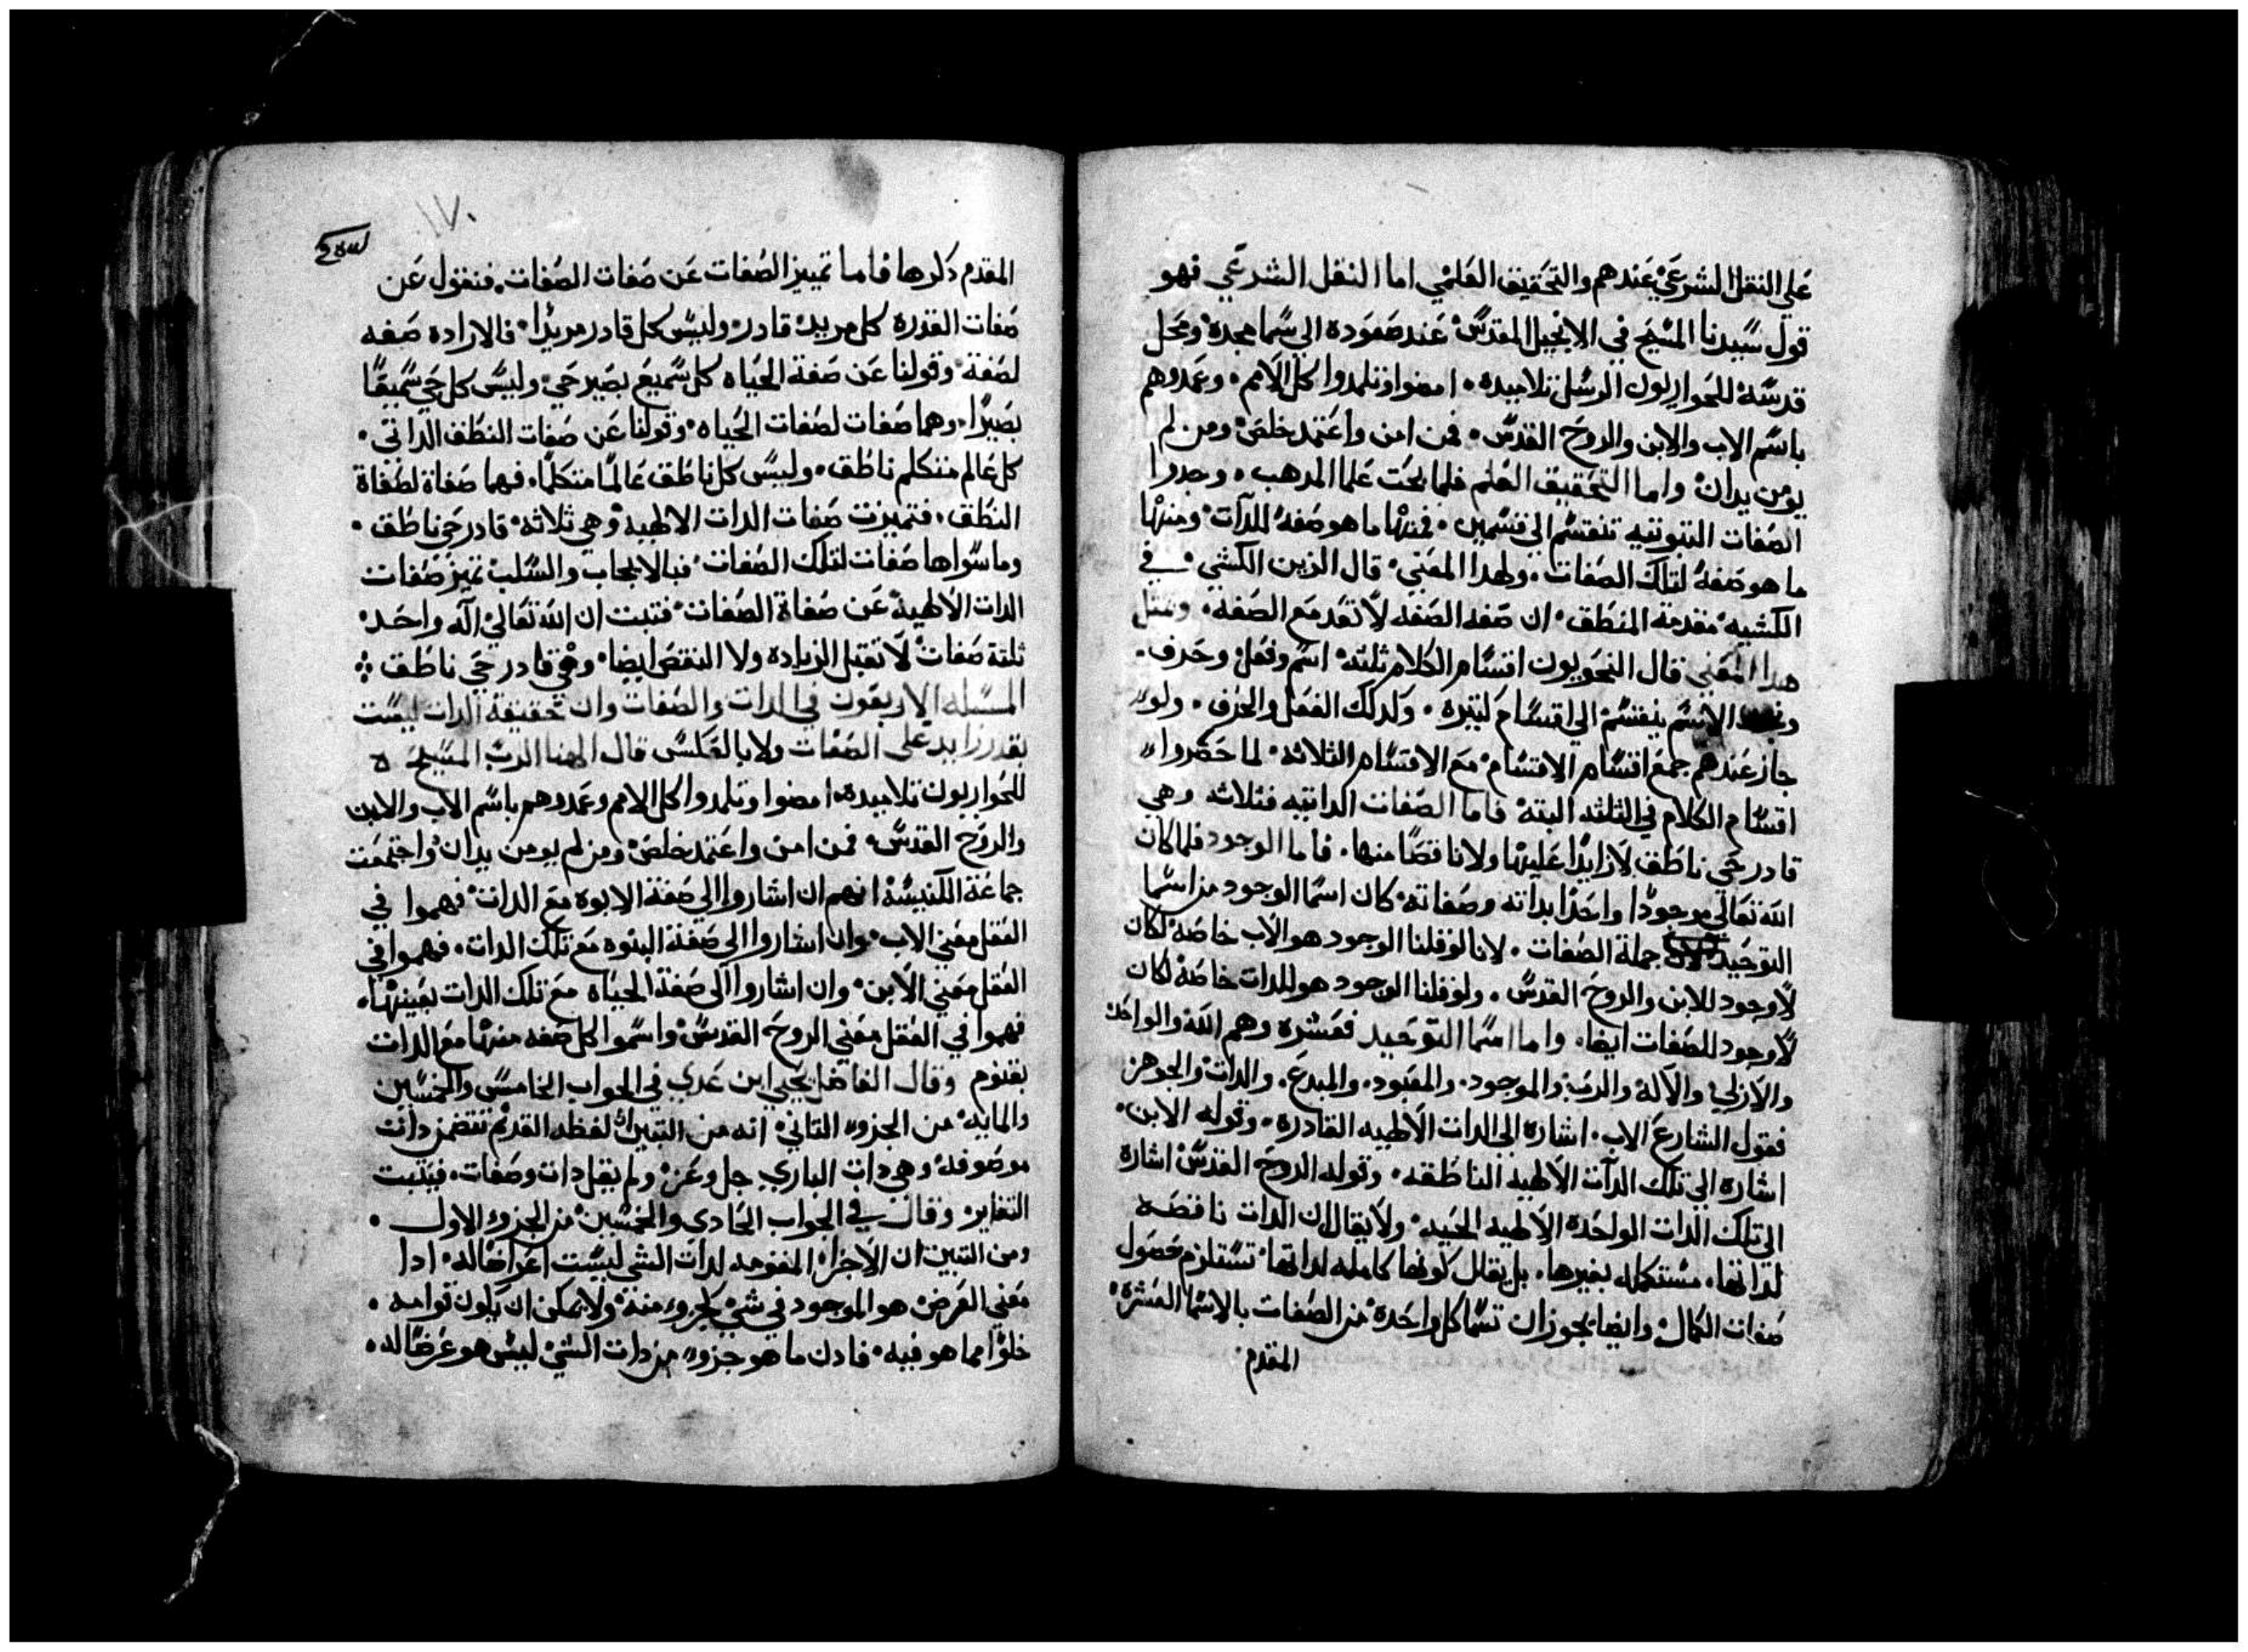 علي النقل الشرعي عندهم والتحقيق العلمي اما النقل الشرعي فهو
قول سيدنا المسيح في الانجيل المقدس عند صعوده الي سما مجده ومحل
قدسه للحواريون الرسل تلاميده امضوا وتلمدوا كل الامم وعمدوهم
باسم الاب والابن والروح القدس فمن امن واعتمد خلص ومن لم
يومن يدان واما التحقيق العلم فلما بحت علما المدهب وجدوا
الصفات التبوتيه تنقسم الي قسمين فمنها ما هو صفه للدات ومنها
ما هو صفة لتلك الصفات ولهدا المعني قال الزين الكشي في
الكشيه مقدمة المنطق ان صفه الصفه لا تعد مع الصفة ومثل
هدا المعني قال النحويون اقسام الكلام ثلثه اسم وفعل وحرف
الاسم ينقسم الي اقسام كتيره وكدلك الفعل والحرف ولو
جاز عندهم جمع اقسام الاقسام مع الاقسام الثلاثه لما حصروا
اقسام الكلام في الثلثه البته فاما الصفات الداتيه فثلاث وهي
قادر حي ناطق لا زايدا عليها ولا ناقصا منها فاما الوجود فلما كان
الله تعالي موجودا واحدا بداته وصفاته كان اسما الوجود من اسما
التوحيد جملة الصفات لانا لو قلنا الوجود هو الاب خاصه لكان
لا وجود للابن والروح القدس ولو قلنا الوجود هو للدات خاصة لكان
لا وجود للصفات ايضا واما اسما التوحيد فعشره وهم الله والواحد
والازلي والاله والرب والموجود والمعبود والمبدع والدات والجوهر
فقول الشارع الاب اشاره الي الدات الالهيه القادره وقوله الابن
اشاره الي تلك الدات الالهيه الناطقه وقوله الروح القدس اشاره
الي تلك الدات الواحده الالهيه الحيه ولا يقال ان الدات ناقصه
لداتها مستكمله بغيرها بل يقال كونها كامله لداتها تستلزم حصول
صفات الكمال وايضا يجوز ان تسما كل واحدة من الصفات بالاسما العشرة
المقدم
١٧٠
المقدم دكرها فاما تمييز الصفات عن صفات الصفات فنقول عن
صفات القدره كل مريد قادر وليس كل قادر مريدا فالاراده صفه
لصفة وقولنا عن صفة الحياه كل سميع بصير حي وليس كل حي سميعا
بصيرا وهما صفات لصفات الحياه وقولنا عن صفات النطق الداتي
كل عالم متكلم ناطق وليس كل ناطق عالما متكلما فهما صفاة لصفاة
النطق فتميزت صفات الدات الالهية وهي ثلاثه قادر حي ناطق
وما سواها صفات لتلك الصفات فبالايجاب والسلب تميز صفات
الدات الالهية عن صفاة الصفات فتبت ان الله تعالي اله واحد
ثلثة صفات لا تقبل الزياده ولا النقص ايضا وهي قادر حي ناطق
المسله الاربعون في الدات والصفات وان حقيقة الدات ليست
بقدر زايد علي الصفات ولا بالعكس قال الهنا الرب المسيح
للحواريون تلاميده امضوا وتلمدوا كل الامم وعمدوهم باسم الاب والابن
والروح القدس فمن امن واعتمد خلص ومن لم يومن يدان واجتمعت
جماعة الكنيسة انهم ان اشاروا الي صفة الابوه مع الدات فهموا في
العقل معني الاب وان اشاروا الي صفة البنوه مع تلك الدات فهموا في
العقل معني الابن وان اشاروا الي صفة الحياه مع تلك الدات بعينها
فهموا في العقل معني الروح القدس واسموا كل صفه منها مع الدات
بقنوم وقال الفاضل يحيي ابن عدي في الجواب الخامس والخمسين
والمايه من الجزو التاني انه من التبين ان لفظه القديم تتضمن دات
موصوفه وهي دات الباري جل وعز ولم يقل دات وصفات فيتبت
التغاير وقال في الجواب الحادي والخمسين من الجزو الاول
ومن التبين ان الاجزا المقومه لدات الشي ليست اعراضا له ادا
معني العرض هو الموجود في شي كجزو منه ولا يمكن ان يكون قوامه
خلوا مما هو فيه فادن ما هو جزو من دات الشي ليس هو عرضا له